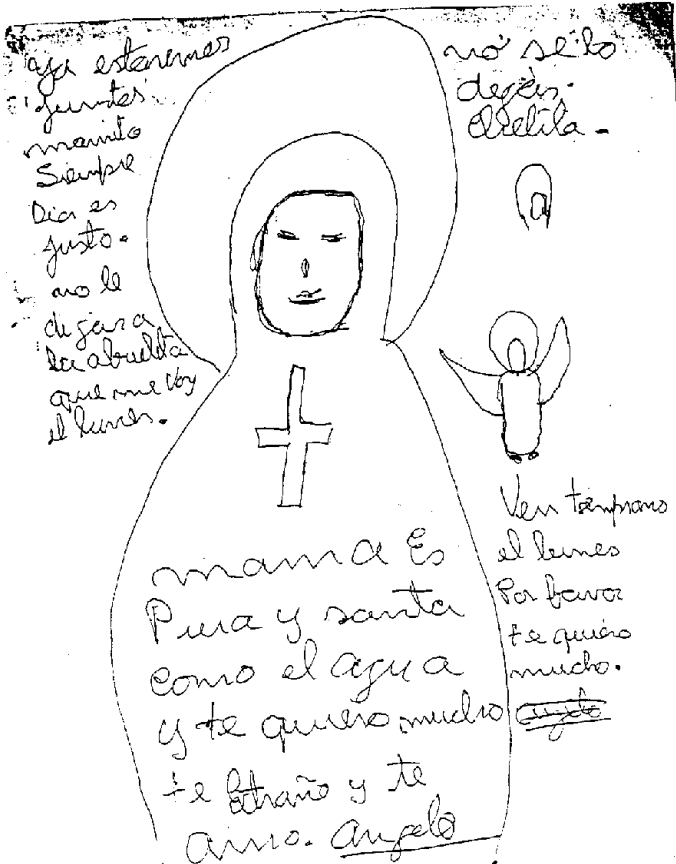 ya estaremos
juntos
mamita
Siempre
Dios es
justo.
no le
digas a
la abuelita
que me voy
el lunes.
no se lo
dejes.
a
mama Es
Pura y santa
como el agua
y te quiero mucho
te extraño y te
amo. Angelo
Ven temprano
el lunes
Por favor
te quiero
mucho.
Angelo